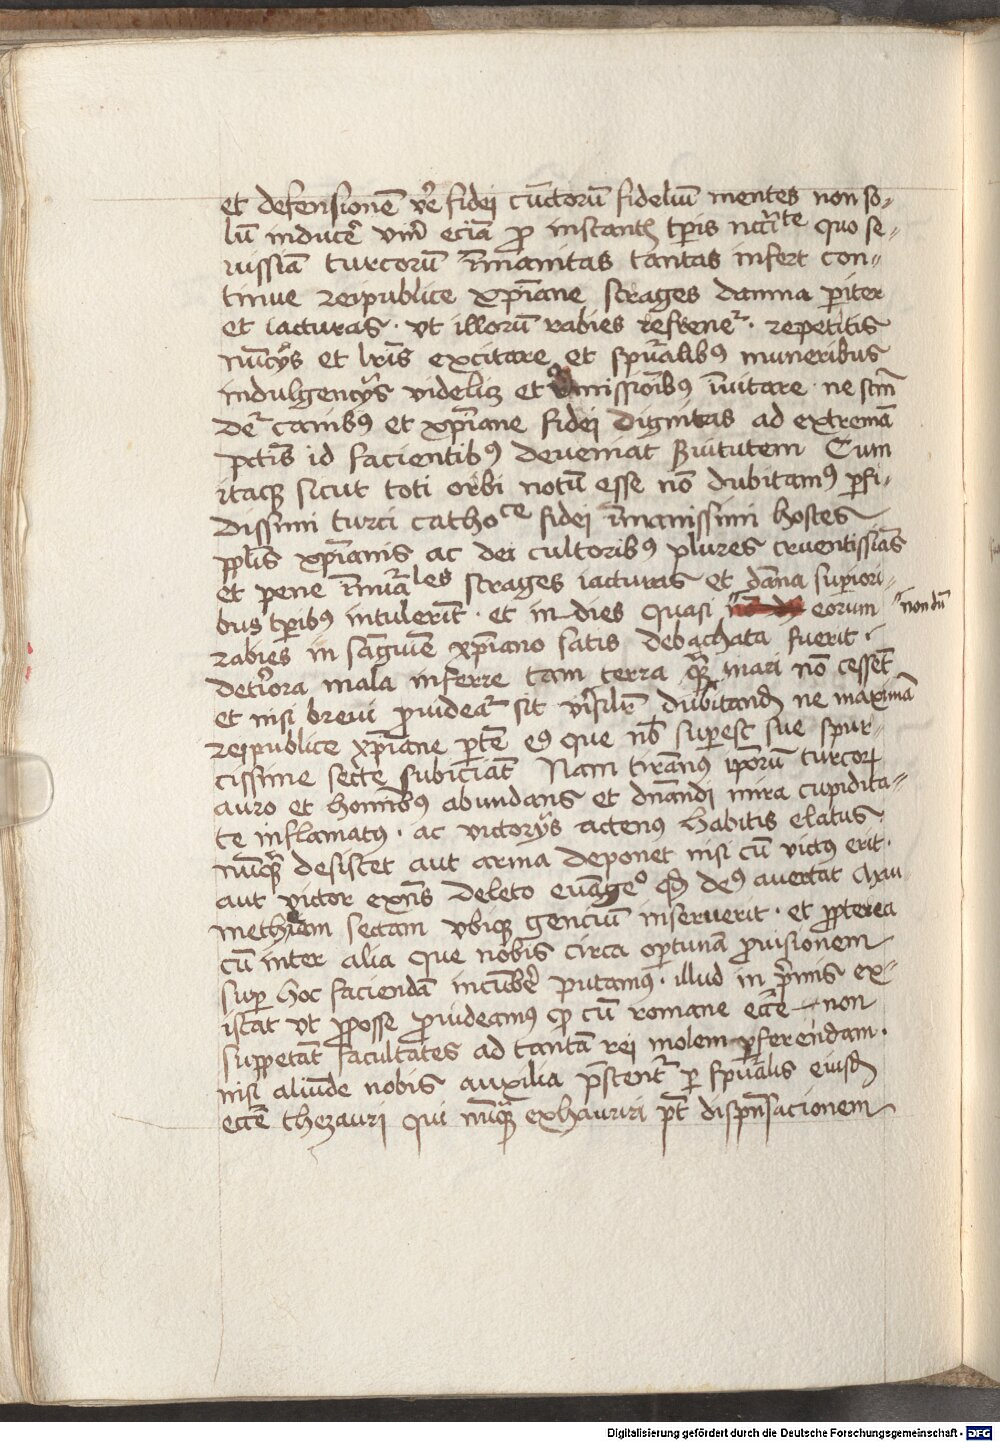 et defensionē vēr fidej cūctorū fideliū mentes non so-
lū inducēr vm̄ eciā ꝓ instanti tꝑis nccīte quo se-
uissīa turcorū īmanitas tantas infert con-
tinue reipublice xp̄iane strages damna ꝑiter
et iacturas · vt illorū rabies refrenet᷑ · repetitis
nūcijs et lrīs excitare et spūalibꝰ muneribus
indulgencijs videlicꝫ et remissiōibꝰ īuitare · ne scm̄
det᷑ canibꝰ et xp̄iane fidej dignitas ad extremā
pctīs id facientibꝰ deueniat Seruitutem Cum
itaqꝫ sicut toti orbi notū esse nō dubitamꝰ ꝑfi-
dissimi turci cathoce fidej īmanissimi hostes
ppl̄is xp̄ianis ac dei cultoribꝰ plures cruentissīas
et pene īnūāles strages iacturas et dāna superiori-
bus tꝑibꝰ intulerīt · et in dies quasi eorum nondū
rabies in sāguīe xp̄iano satis debachata fuerit ·
deteriora mala inferre tam terra qꝫ mari nō cessēt
et nisi breui ꝓuideat᷑ sit dubitandū ne maximā
reipublice xp̄iane ꝑtē eiꝰ que nb̄ superest sue spur-
cissime secte subiciāt Nam tirānꝰ ip̄orū turcorꝝ
auro et homībꝰ abundans et dn̄andj mira cupidita-
te inflamatꝰ · ac victorijs actenꝰ habitis elatus
nūqꝫ desistet aut arma deponet nisi cū victꝰ erit ·
aut victor exn̄s deleto euāgeo qd̄ deꝰ auertat Mau-
methicam sectam vbiqꝫ genciū inseruerit · et ꝓpterea
cū inter alia que nobis circa oportunā ꝓuisionem
suꝑ hoc faciendā incūbēr putamꝰ · illud in prīmis ex-
istat vt ꝓposse ꝓuideamꝰ qꝫ cū romane eccīe non
suppetāt facultates ad tantā rej molem ꝑferendam ·
nisi aliūde nobis auxilia p̄stent᷑ ꝑ spūalis eiusd̄
eccīe thezaurj qui nūqꝫ exhauriri pt̄ dispēnsacionem
Digitalisierung gefördert durch die Deutsche Forschungsgemeinschaft - DFG